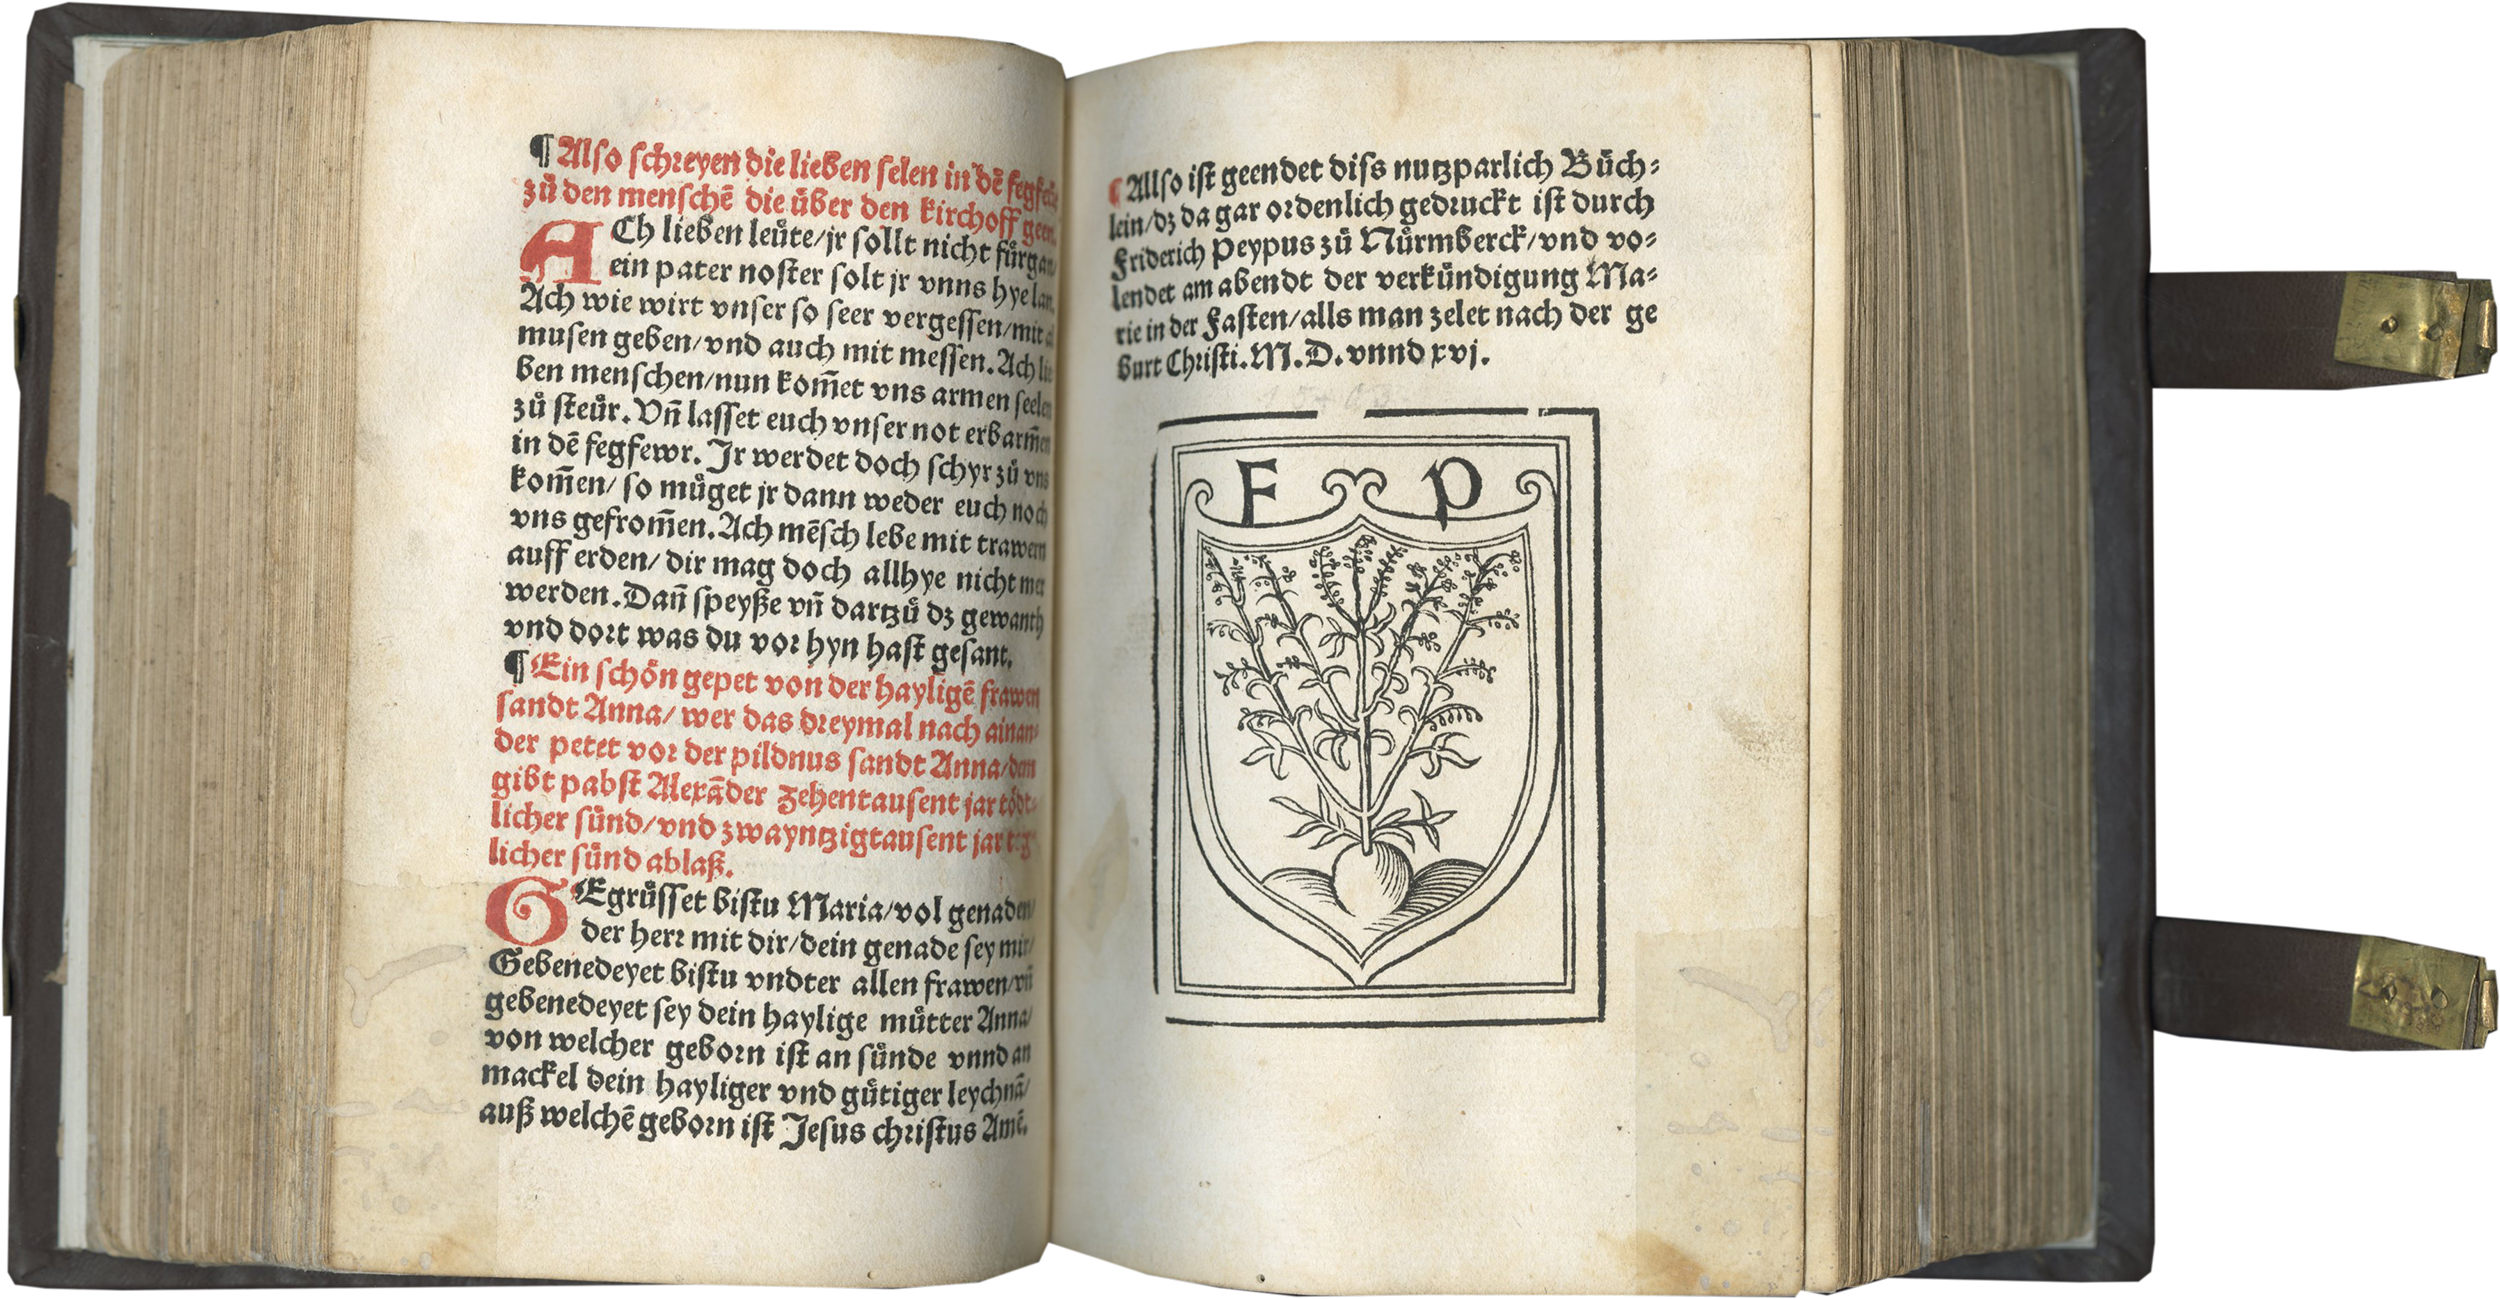 ¶ Also schreyen die lieben selen in dē fegfeür
zů den menschē die über den kirchoff geen.
ACh lieben leüte/jr sollt nicht fürgan/
ein pater noster solt jr vnns hye lan.
Ach wie wirt vnser so seer vergessen/mit al
musen geben/vnd auch mit messen. Ach lie
ben menschen/nun kom̄et vns armen seelen
zů steür. Vn̄ lasset euch vnser not erbarm̄en
in dē fegfewr. Jr werdet doch schyr zů vns
kom̄en/ so müget jr dann weder euch noch
vns gefrom̄en. Ach mēsch lebe mit trawern
auff erden/ dir mag doch allhye nicht mer
werden. Dan̄ speyße vn̄ dartzů dz gewanth
vnd dort was du vor hyn hast gesant.
¶ Ein schön gepet von der hayligē frawen
sandt Anna/ wer das dreymal nach ainan⸗
der petet vor der pildnus sandt Anna/dem
gibt pabst Alexāder zehentausent jar tödt⸗
licher sünd/vnd zwayntzigtausent jar teg⸗
licher sünd ablaß.
GEgrüsset bistu Maria/vol genaden/
der herr mit dir/dein genade sey mir/
Gebenedeyet bistu vndter allen frawen/vn̄
gebenedeyet sey dein haylige můtter Anna/
von welcher geborn ist an sünde vnnd an
mackel dein hayliger vnd gütiger leychnā/
auß welchē geborn ist Jesus christus Amē.
¶ Allso ist geendet diss nutzparlich Büch⸗
lein/dz da gar ordenlich gedruckt ist durch
Friderich Peypus zů Nürmberck/vnd vo⸗
lendet am abendt der verkündigung Ma⸗
rie in der Fasten/alls man zelet nach der ge
burt Christi. M. D. vnnd xvj.
F P